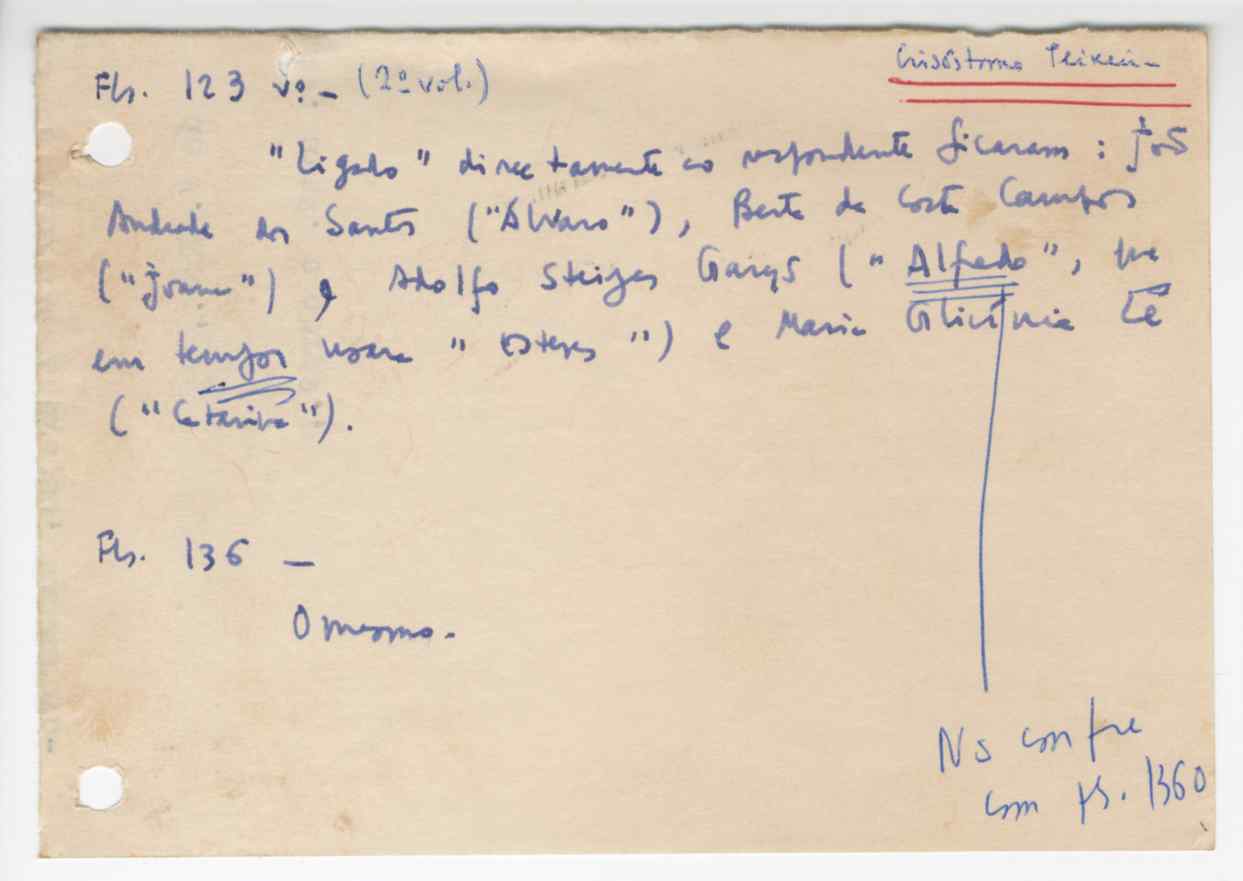 Crisóstomo Teixeira
Fls. 123 vº - (2º vol.)
"Ligado" directamente ao respondente ficaram: José
Andrade dos Santos ("Álvaro"), Berta da Costa Campos
("Joana") e Adolfo Steiger Garção ("Alfredo", que
em tempos usara "Esteves") e Maria Glicínia Lé
("Catarina").
Fls. 136 —
O mesmo.
Não confere
com fls. 1360